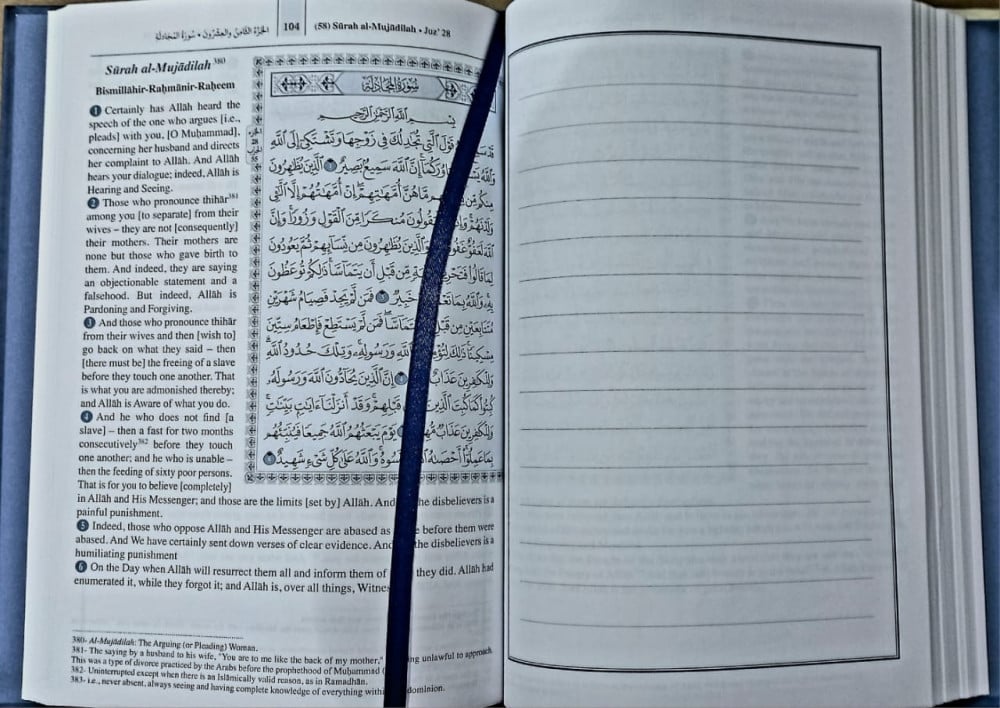 الجزء الثامن والعشرون • سورة المجادلة
104
(58) Sūrah al-Mujādilah • Juz' 28
Sūrah al-Mujādilah 380
Bismillāhir-Raḥmānir-Raḥeem
1 Certainly has Allāh heard the
speech of the one who argues [i.e.,
pleads] with you, [O Muḥammad],
concerning her husband and directs
her complaint to Allāh. And Allāh
hears your dialogue; indeed, Allāh is
Hearing and Seeing.
2 Those who pronounce thihār381
among you [to separate] from their
wives – they are not [consequently]
their mothers. Their mothers are
none but those who gave birth to
them. And indeed, they are saying
an objectionable statement and a
falsehood. But indeed, Allāh is
Pardoning and Forgiving.
3 And those who pronounce thihār
from their wives and then [wish to]
go back on what they said – then
[there must be] the freeing of a slave
before they touch one another. That
is what you are admonished thereby;
and Allāh is Aware of what you do.
4 And he who does not find [a
slave] – then a fast for two months
consecutively382 before they touch
one another; and he who is unable –
then the feeding of sixty poor persons.
That is for you to believe [completely]
in Allāh and His Messenger; and those are the limits [set by] Allāh. And he disbelievers is a
painful punishment.
5 Indeed, those who oppose Allāh and His Messenger are abased as before them were
abased. And We have certainly sent down verses of clear evidence. And the disbelievers is a
humiliating punishment
6 On the Day when Allāh will resurrect them all and inform them of they did. Allāh had
enumerated it, while they forgot it; and Allāh is, over all things, Witne
سورة المجادلة
بِسْمِ ٱللَّهِ ٱلرَّحْمَٰنِ ٱلرَّحِيمِ
قَدْ قَوْلَ ٱلَّتِى تُجَٰدِلُكَ فِى زَوْجِهَا وَتَشْتَكِىٓ إِلَى ٱللَّهِ
وَٱللَّهُ إِنَّ ٱللَّهَ سَمِيعٌۢ بَصِيرٌ ١ ٱلَّذِينَ يُظَٰهِرُونَ
مِنكُم مَّا هُنَّ أُمَّهَٰتِهِمْ إِنْ أُمَّهَٰتُهُمْ إِلَّا ٱلَّٰٓـِٔى
وَلَدْنَهُمْ مُنكَرًا مِّنَ ٱلْقَوْلِ وَزُورًا وَإِنَّ
ٱللَّهَ لَعَفُوٌّ يُظَٰهِرُونَ مِن نِّسَآئِهِمْ ثُمَّ يَعُودُونَ
لِمَا قَالُوا۟ مِّن قَبْلِ أَن يَتَمَآسَّا ذَٰلِكُمْ تُوعَظُونَ
بِهِۦ وَٱللَّهُ بِمَا خَبِيرٌ ٣ فَمَن لَّمْ يَجِدْ فَصِيَامُ شَهْرَيْنِ
مُتَتَابِعَيْنِ مِن فَمَن لَّمْ يَسْتَطِعْ فَإِطْعَامُ سِتِّينَ
مِسْكِينًا ذَٰلِكَ وَرَسُولِهِۦ وَتِلْكَ حُدُودُ ٱللَّهِ
وَلِلْكَٰفِرِينَ عَذَابٌ إِنَّ ٱلَّذِينَ يُحَآدُّونَ ٱللَّهَ وَرَسُولَهُۥ
كُبِتُوا۟ كَمَا كُبِتَ ٱلَّذِينَ قَبْلِهِمْ وَقَدْ أَنزَلْنَآ ءَايَٰتٍۭ بَيِّنَٰتٍ
وَلِلْكَٰفِرِينَ عَذَابٌ يَوْمَ يَبْعَثُهُمُ ٱللَّهُ جَمِيعًا فَيُنَبِّئُهُم
بِمَا عَمِلُوٓا۟ أَحْصَىٰهُ وَٱللَّهُ عَلَىٰ كُلِّ شَىْءٍ شَهِيدٌ ٦
380- Al-Mujādilah: The Arguing (or Pleading) Woman.
381- The saying by a husband to his wife, "You are to me like the back of my mother," unlawful to approach.
This was a type of divorce practiced by the Arabs before the prophethood of Muḥammad (
382- Uninterrupted except when there is an Islāmically valid reason, as in Ramadhān.
383- i.e., never absent, always seeing and having complete knowledge of everything dominion.